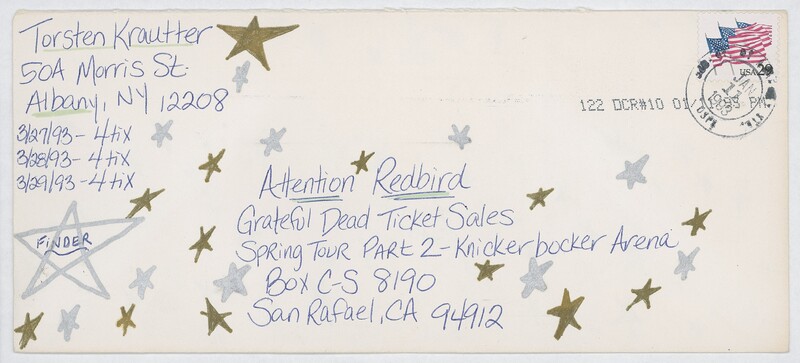 Torsten Krautter
50A Morris St.
Albany, NY 12208
3/27/93 - 4 tix
3/28/93 - 4 tix
3/29/93 - 4 tix
FINDER
USA 29
JAN
1993
USPS
122 DCR#10 01/11/93 PM
Attention Redbird
Grateful Dead Ticket Sales
Spring Tour Part 2 - Knickerbocker Arena
Box C-S 8190
San Rafael, CA 94912